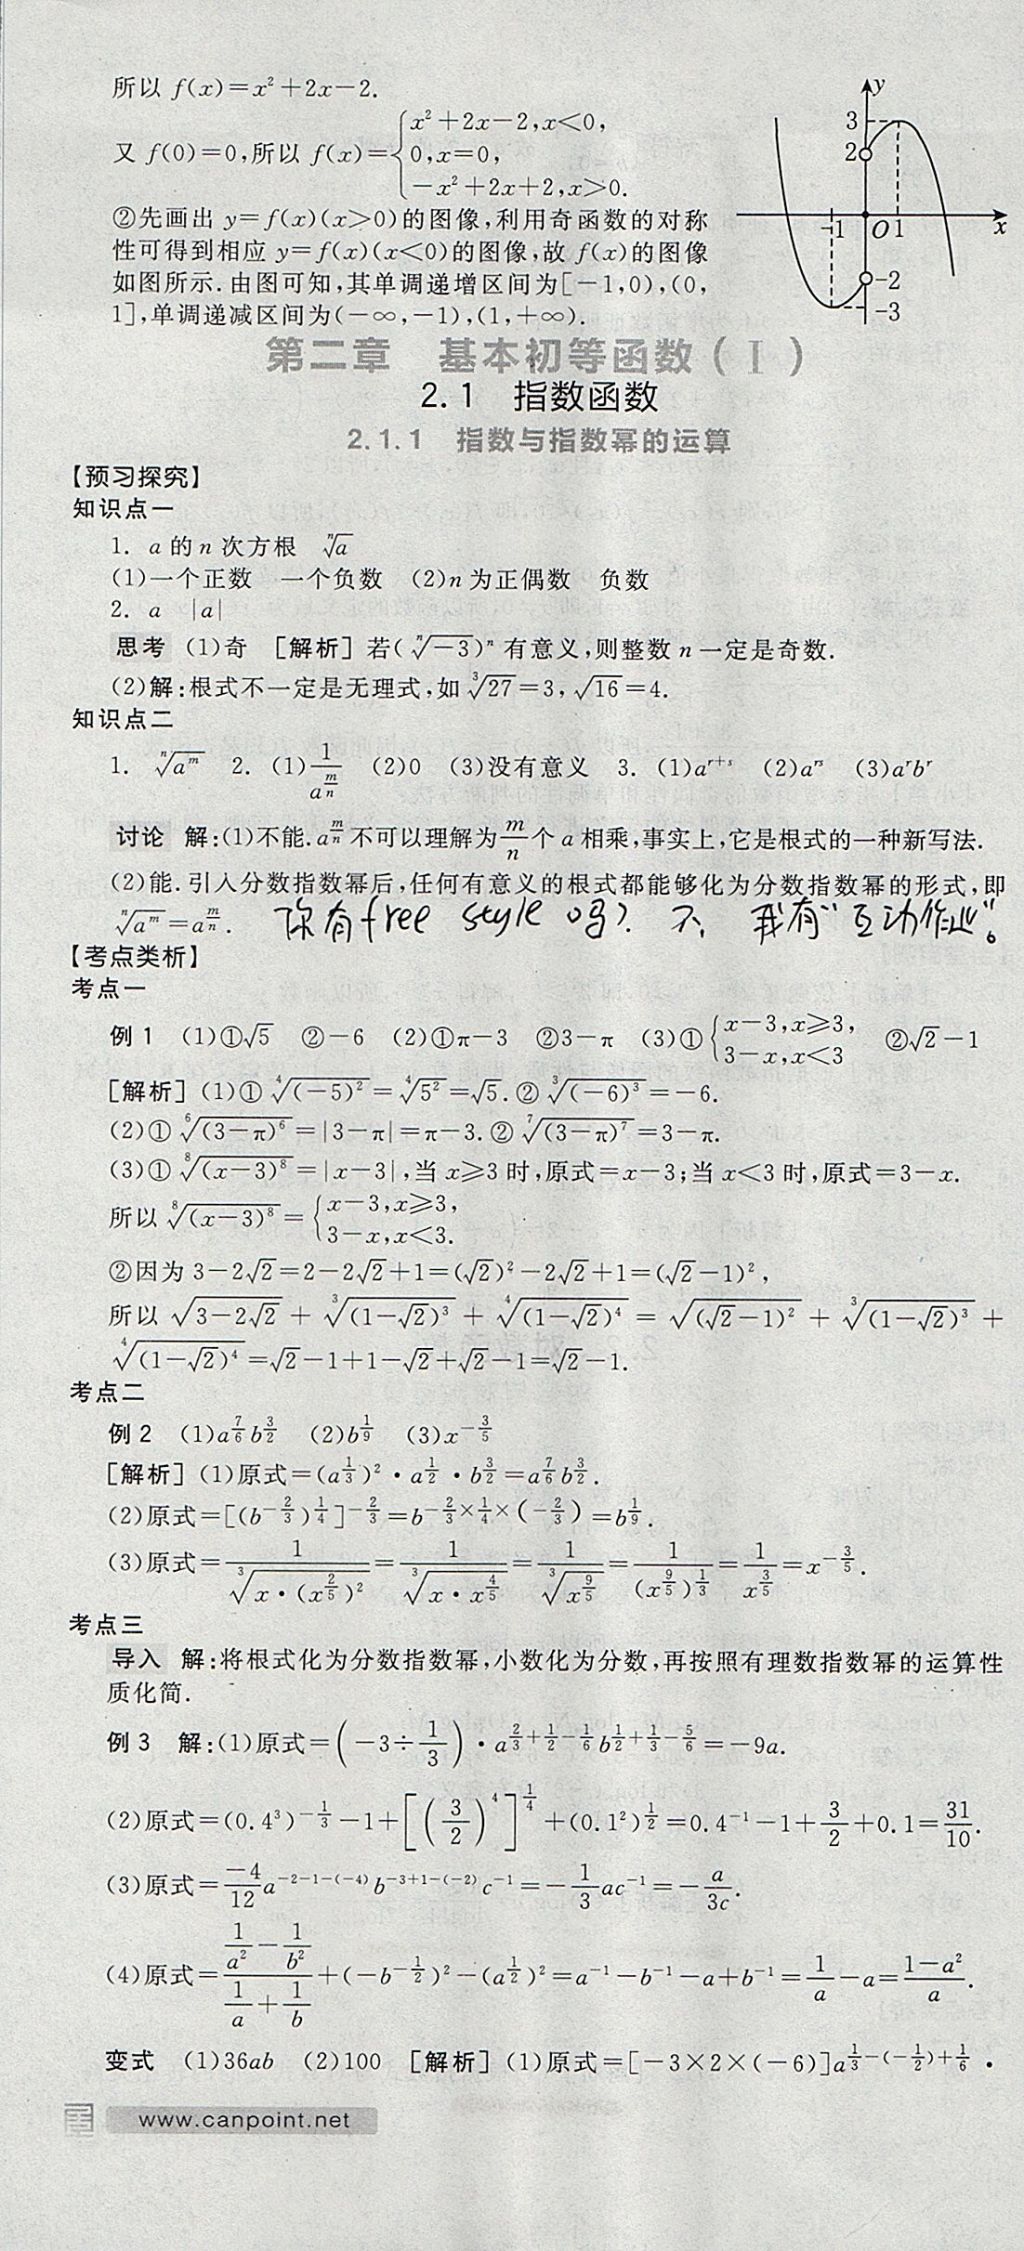 所以 f(x)=x²+2x-2.
又 f(0)=0,所以 f(x)={x²+2x-2,x<0,
0,x=0,
-x²+2x+2,x>0.
②先画出 y=f(x)(x>0)的图像,利用奇函数的对称
性可得到相应 y=f(x)(x<0)的图像,故 f(x)的图像
如图所示.由图可知,其单调递增区间为[-1,0),(0,
1],单调递减区间为(-∞,-1),(1,+∞).
y
3
2
-1 O 1 x
-2
-3
第二章 基本初等函数(Ⅰ)
2.1 指数函数
2.1.1 指数与指数幂的运算
【预习探究】
知识点一
1. a 的 n 次方根 ⁿ√a
(1)一个正数 一个负数 (2)n 为正偶数 负数
2. a |a|
思考 (1)奇 [解析] 若(ⁿ√-3)ⁿ 有意义,则整数 n 一定是奇数.
(2)解:根式不一定是无理式,如 ³√27=3,√16=4.
知识点二
1. ⁿ√a^m 2. (1) 1/a^(m/n) (2)0 (3)没有意义 3. (1)a^(r+s) (2)a^(rs) (3)a^r b^r
讨论 解:(1)不能.a^(m/n) 不可以理解为 m/n 个 a 相乘,事实上,它是根式的一种新写法.
(2)能.引入分数指数幂后,任何有意义的根式都能够化为分数指数幂的形式,即
ⁿ√a^m=a^(m/n). 你有free style吗? 不, 我有“互动作业”。
【考点类析】
考点一
例 1 (1)①√5 ②-6 (2)①π-3 ②3-π (3)①{x-3,x≥3,
3-x,x<3 ②√2-1
[解析] (1)① ⁴√(-5)²=⁴√5²=√5.② ³√(-6)³=-6.
(2)① ⁶√(3-π)⁶=|3-π|=π-3.② ⁷√(3-π)⁷=3-π.
(3)① ⁸√(x-3)⁸=|x-3|,当 x≥3 时,原式=x-3;当 x<3 时,原式=3-x.
所以 ⁸√(x-3)⁸={x-3,x≥3,
3-x,x<3.
②因为 3-2√2=2-2√2+1=(√2)²-2√2+1=(√2-1)²,
所以 √(3-2√2) + ³√(1-√2)³ + ⁴√(1-√2)⁴ = √(√2-1)² + ³√(1-√2)³ +
⁴√(1-√2)⁴=√2-1+1-√2+√2-1=√2-1.
考点二
例 2 (1)a^(7/6)b^(3/2) (2)b^(1/9) (3)x^(-3/5)
[解析] (1)原式=(a^(1/3))²·a^(1/2)·b^(3/2)=a^(7/6)b^(3/2).
(2)原式=[(b^(-2/3))^(1/4)]^(-2/3)=b^(-2/3×1/4×(-2/3))=b^(1/9).
(3)原式=1/³√(x·(x^(2/5))²)=1/³√(x·x^(4/5))=1/³√(x^(9/5))=1/(x^(9/5))^(1/3)=1/x^(3/5)=x^(-3/5).
考点三
导入 解:将根式化为分数指数幂,小数化为分数,再按照有理数指数幂的运算性
质化简.
例 3 解:(1)原式=(-3÷1/3)·a^(2/3+1/2-1/6)b^(1/2+1/3-5/6)=-9a.
(2)原式=(0.4³)^(-1/3)-1+[(3/2)^4]^(1/4)+(0.1²)^(1/2)=0.4⁻¹-1+3/2+0.1=31/10.
(3)原式=-4/12 a^(-2-1-(-4))b^(-3+1-(-2))c⁻¹=-1/3 ac⁻¹=-a/3c.
(4)原式=(1/a²-1/b²)/(1/a+1/b)+(-b^(-1/2))²-(a^(1/2))²=a⁻¹-b⁻¹-a+b⁻¹=1/a-a=(1-a²)/a.
变式 (1)36ab (2)100 [解析] (1)原式=[-3×2×(-6)]a^(1/3-(-1/2)+1/6)·
www.canpoint.net